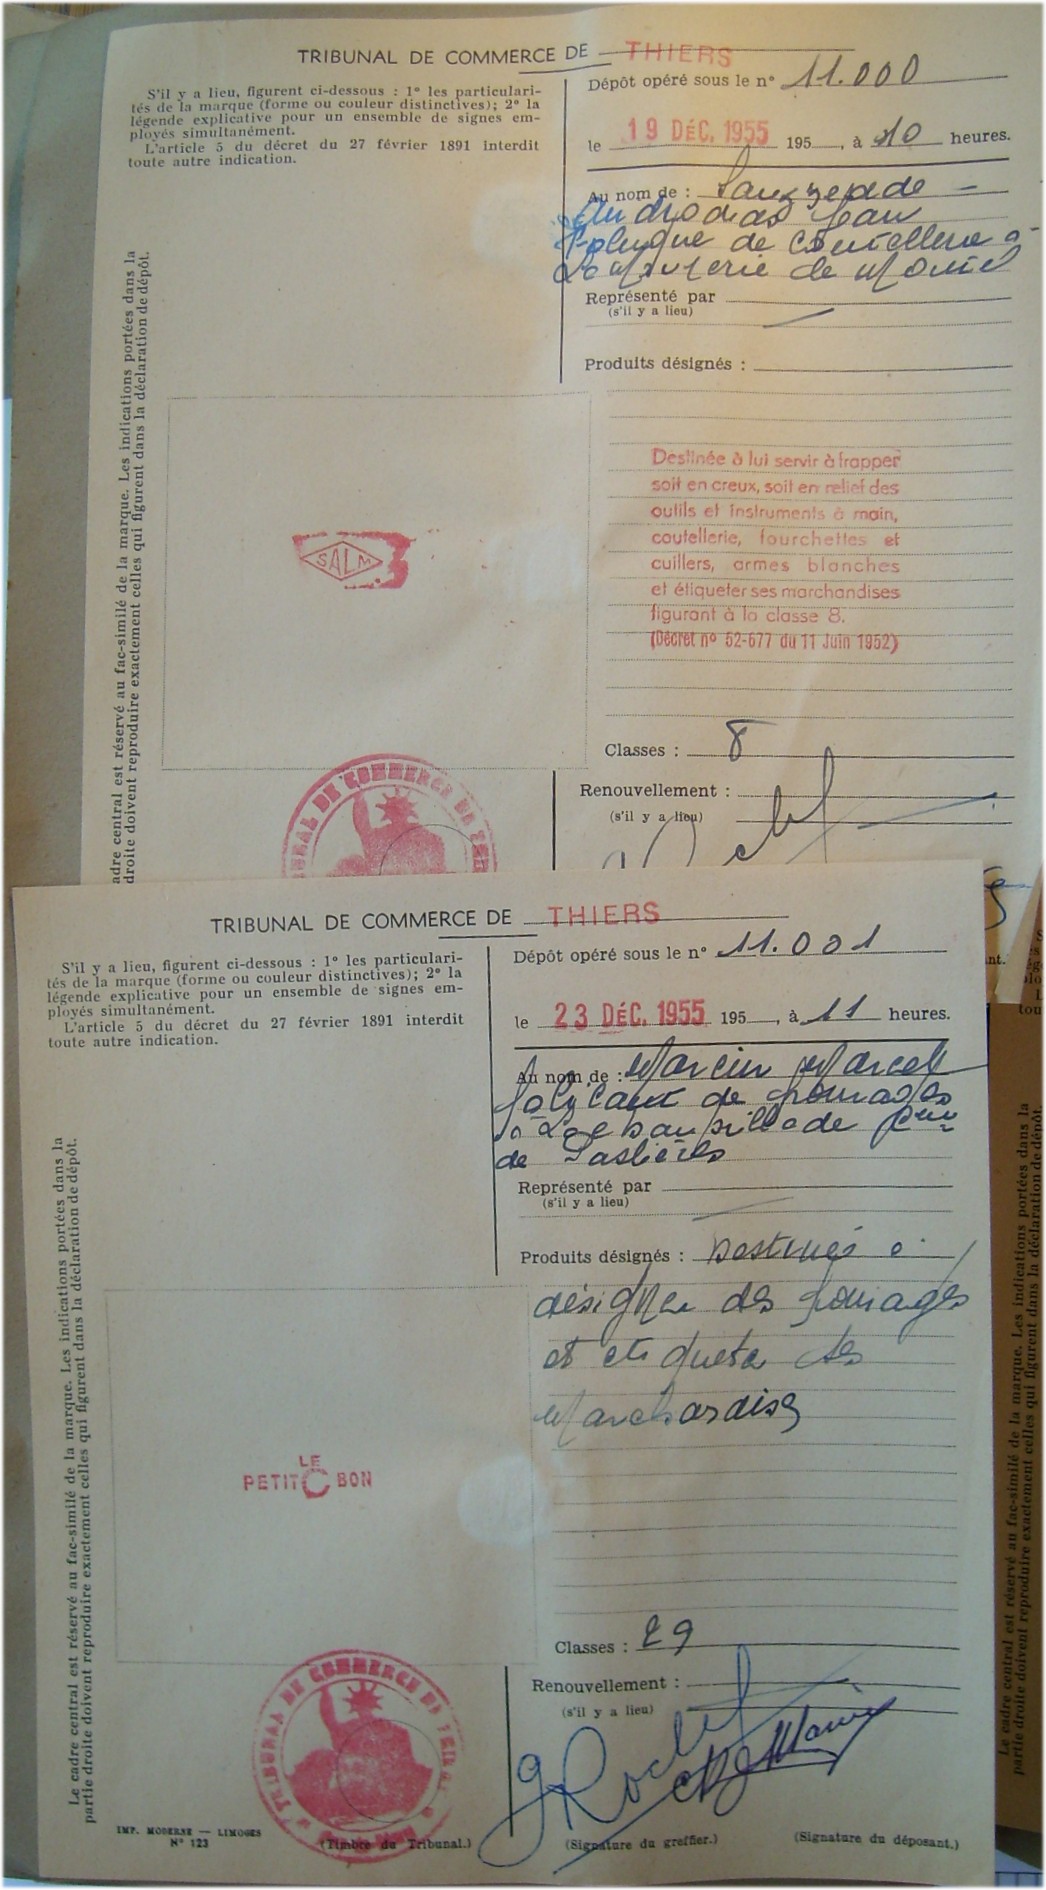 TRIBUNAL DE COMMERCE DE THIERS
S'il y a lieu, figurent ci-dessous : 1° les particulari-
tés de la marque (forme ou couleur distinctives); 2° la
légende explicative pour un ensemble de signes em-
ployés simultanément.
L'article 5 du décret du 27 février 1891 interdit
toute autre indication.
Dépôt opéré sous le n° 11.000
le 19 DÉC. 1955 195 , à 10 heures.
Au nom de : Sauzedde -
Androdias Jean
de Coutellerie à
La de
Représenté par
(s'il y a lieu)
Produits désignés :
adre central est réservé au fac-similé de la marque. Les indications portées dans la
droite doivent reproduire exactement celles qui figurent dans la déclaration de dépôt.
SALM
Destinée à lui servir à frapper
soit en creux, soit en relief des
outils et instruments à main,
coutellerie, fourchettes et
cuillers, armes blanches
et étiqueter ses marchandises
figurant à la classe 8.
(Décret n° 52-677 du 11 Juin 1952)
Classes : 8
Renouvellement :
(s'il y a lieu)
TRIBUNAL DE COMMERCE DE THIERS
S'il y a lieu, figurent ci-dessous : 1° les particulari-
tés de la marque (forme ou couleur distinctives); 2° la
légende explicative pour un ensemble de signes em-
ployés simultanément.
L'article 5 du décret du 27 février 1891 interdit
toute autre indication.
Dépôt opéré sous le n° 11.001
le 23 DÉC. 1955 195 , à 11 heures.
Au nom de : Marcel
de fromages
à
de Paslières
Représenté par
(s'il y a lieu)
Produits désignés : Destinés à
désigner des fromages
et etiqueter ses
Marchandises
Le cadre central est réservé au fac-similé de la marque. Les indications portées dans la
partie droite doivent reproduire exactement celles qui figurent dans la déclaration de dépôt.
LE
PETIT C BON
Classes : 29
Renouvellement :
(s'il y a lieu)
TRIBUNAL DE COMMERCE DE THIERS
IMP. MODERNE — LIMOGES
N° 123
(Timbre du Tribunal.)
(Signature du greffier.)
(Signature du déposant.)
Le cadre central est réservé au fac-similé de la marque. Les indications portées dans la
partie droite doivent reproduire exactement celles qui figurent dans la déclaration de dépôt.